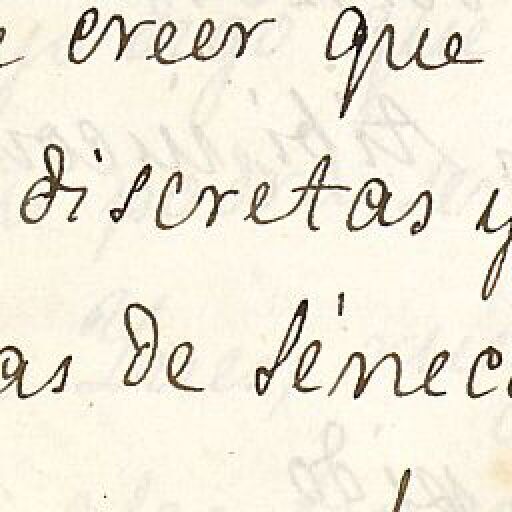 e creer que
discretas y
as de Séneca